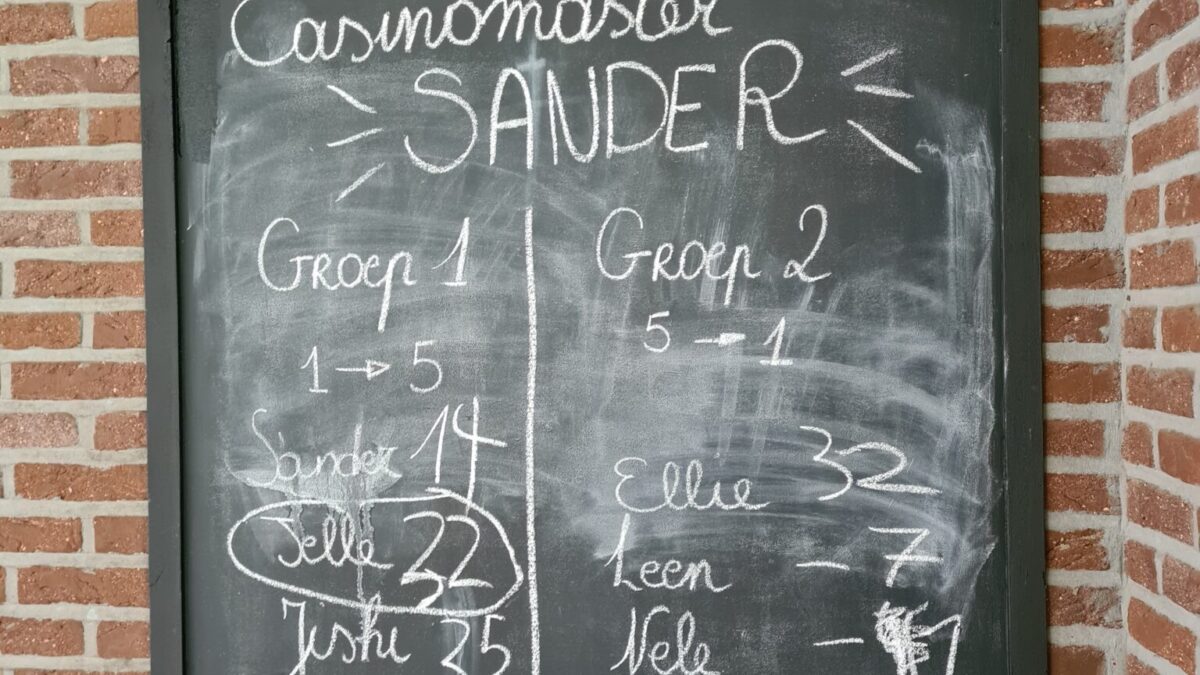 Casinomaster
SANDER
Groep 1
1 → 5
Sander 14
Jelle 22
Jiski 25
Groep 2
5 → 1
Ellie 32
Leen - 7
Nele -